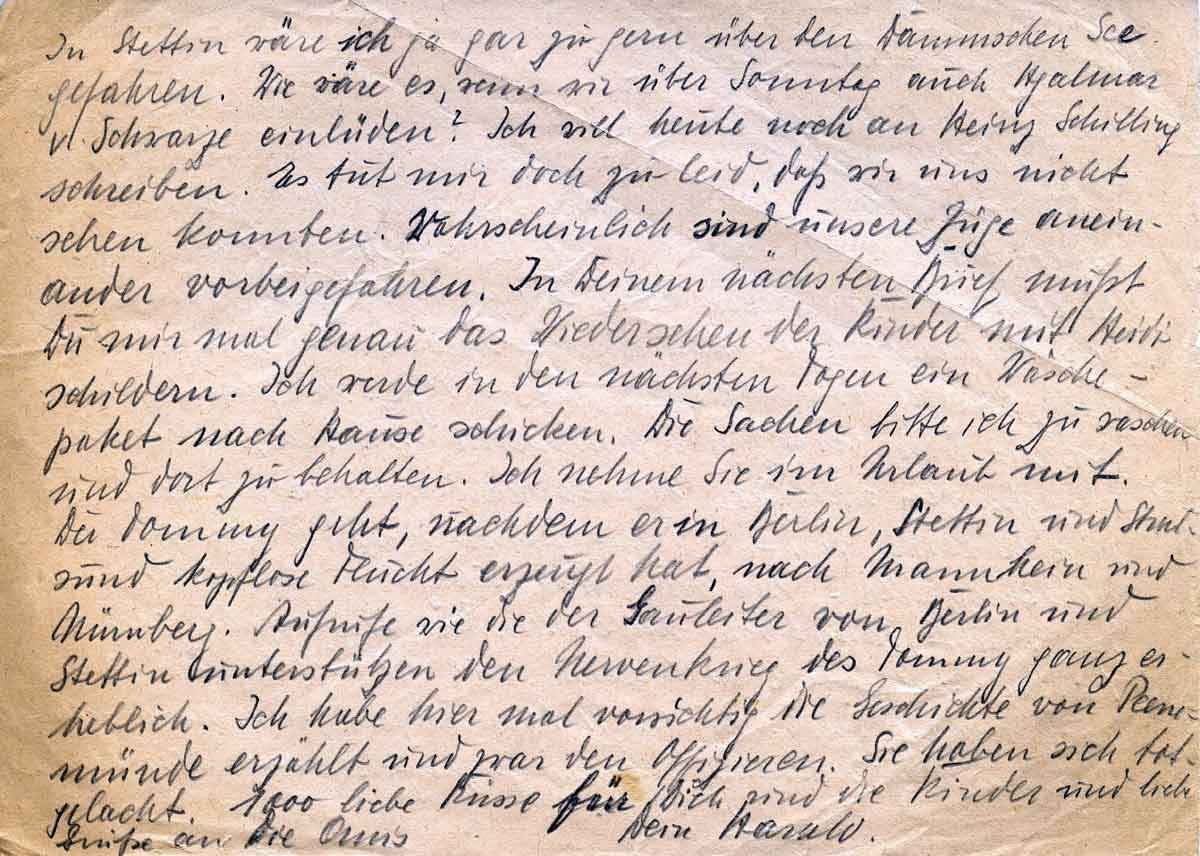 In Stettin wäre ich ja gar zu gern über den Dammschen See
gefahren. Wie wäre es, wenn wir über Sonntag auch Hjalmar
v. Schwarze einlüden? Ich will heute noch an Heinz Schilling
schreiben. Es tut mir doch zu leid, daß wir uns nicht
sehen konnten. Wahrscheinlich sind unsere Züge anein-
ander vorbeigefahren. In Deinem nächsten Brief mußt
Du mir mal genau das Wiedersehen der Kinder mit Heidi
schildern. Ich werde in den nächsten Tagen ein Wäsche-
paket nach Hause schicken. Die Sachen bitte ich zu waschen
und dort zu behalten. Ich nehme Sie im Urlaub mit.
Der Tommy geht, nachdem er in Berlin, Stettin und Stral-
sund kopflose Flucht erzeugt hat, nach Mannheim und
Nürnberg. Aufrufe wie die der Gauleiter von Berlin und
Stettin unterstützen den Nervenkrieg des Tommy ganz er-
heblich. Ich habe hier mal vorsichtig die Geschichte von Peene-
münde erzählt und zwar den Offizieren. Sie haben sich tot-
gelacht. 1000 liebe Küsse für Dich und die Kinder und lieb
Grüße an die Omis Dein Harald.